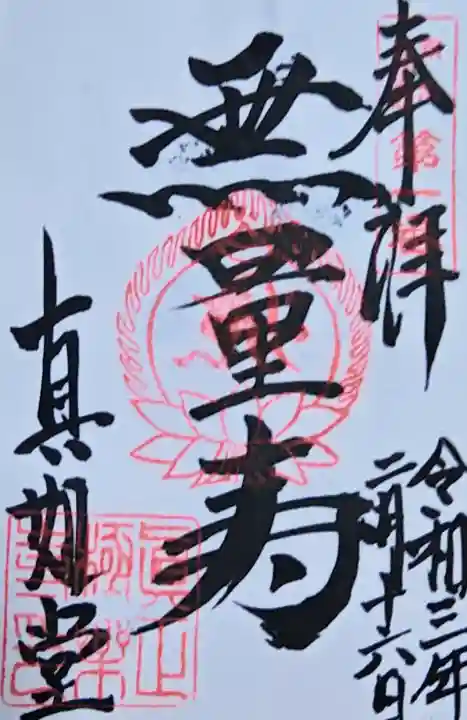 奉拝
令和三年
二月十六日
無量寿
真如堂
眞正
極樂